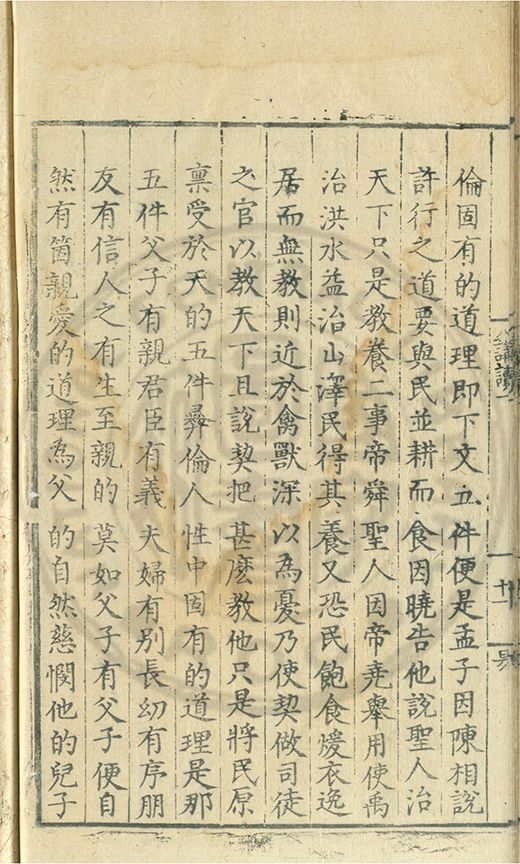 倫固有的道理即下文五件便是孟子因陳相說
許行之道要與民並耕而食因曉告他說聖人治
天下只是教養二事帝舜聖人因帝堯舉用使禹
治洪水益治山澤民得其養又恐民飽食煖衣逸
居而無教則近於禽獸深以為憂乃使契做司徒
之官以教天下且說契把甚麽教他只是將民原
稟受於天的五件彛倫人性中固有的道理是那
五件父子有親君臣有義夫婦有別長幼有序朋
友有信人之有生至親的莫如父子有父子便自
然有箇親愛的道理為父的自然慈憫他的兒子
講讀
十一